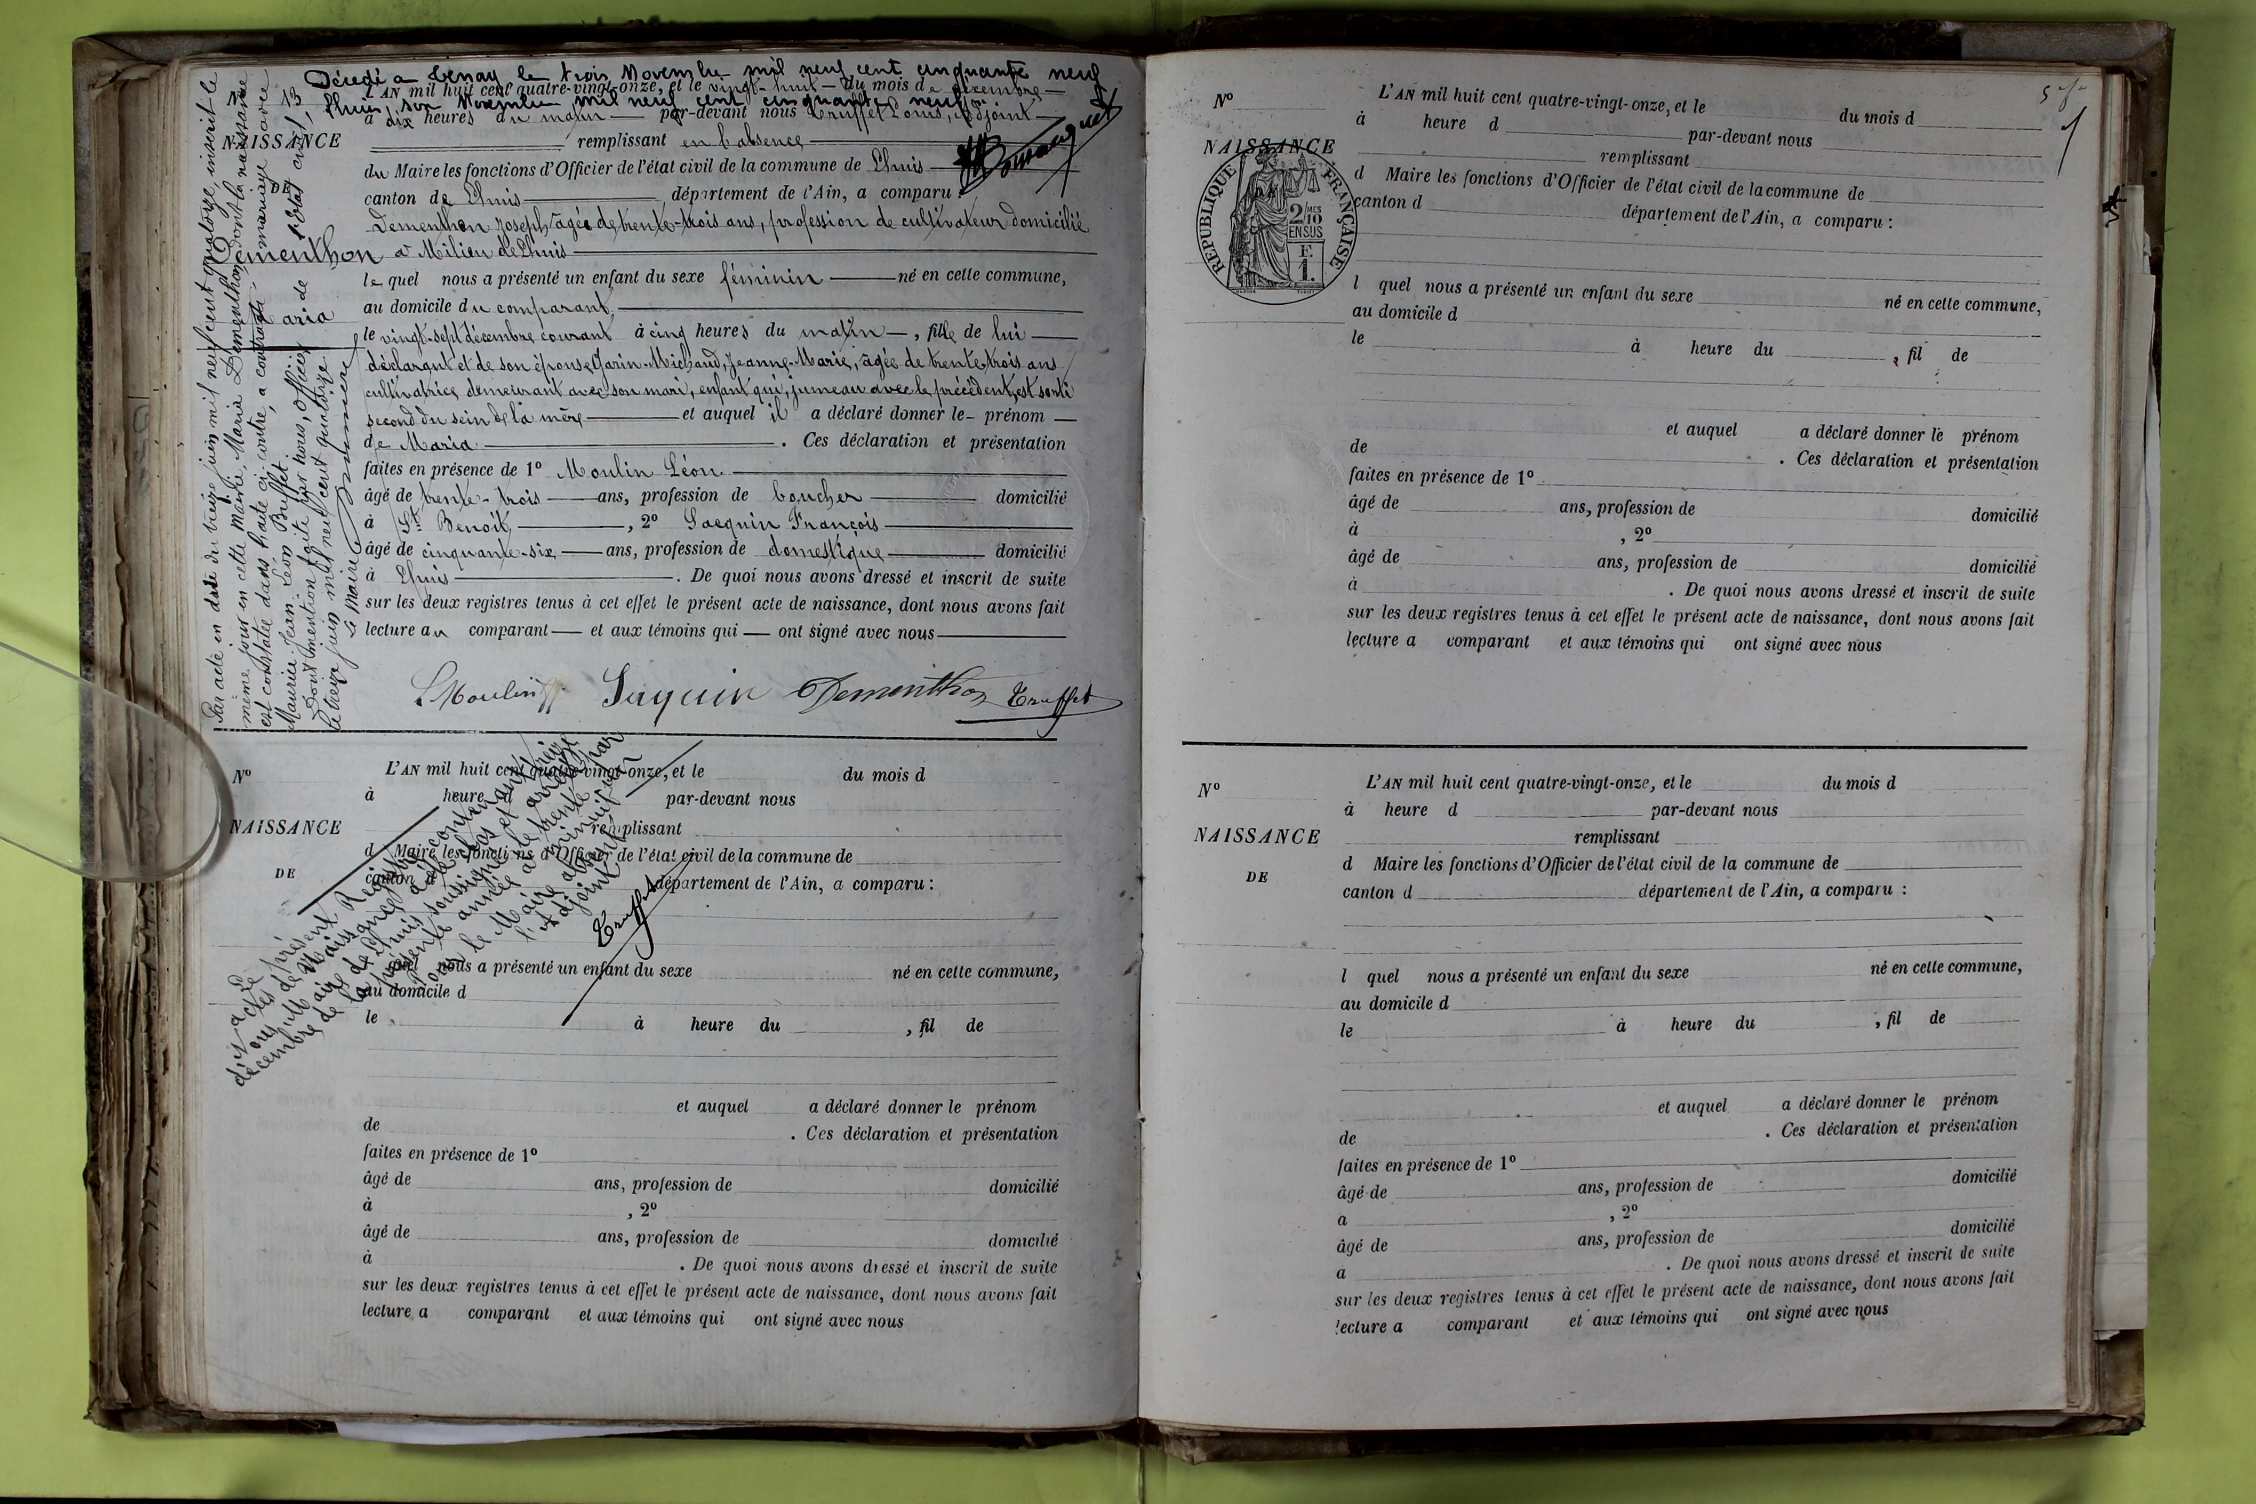 Décédé a Tenay le trois Novembre mil neuf cent cinquante neuf
Lhuis, six Novembre mil neuf cent cinquante neuf
N° 13
NAISSANCE
DE
Dementhon
Maria
L'AN mil huit cent quatre-vingt-onze, et le vingt-huit du mois de décembre
à dix heures du matin par-devant nous Truffet Louis, adjoint
remplissant en l'absence
du Maire les fonctions d'Officier de l'état civil de la commune de Lhuis
canton de Lhuis département de l'Ain, a comparu :
Dementhon Joseph, âgé de trente-trois ans, profession de cultivateur domicilié
à Milieu de Lhuis
lequel nous a présenté un enfant du sexe féminin né en cette commune,
au domicile du comparant,
le vingt-sept décembre courant à cinq heures du matin, fille de lui
déclarant et de son épouse Jarin-Michaud, Jeanne-Marie, âgée de trente-trois ans
cultivatrice, demeurant avec son mari, enfant qui, jumeau avec le précédent, est sorti
second du sein de la mère et auquel il a déclaré donner le prénom
de Maria. Ces déclaration et présentation
faites en présence de 1° Moulin Léon
âgé de trente-trois ans, profession de boucher domicilié
à St Benoit, 2° Saequin François
âgé de cinquante-six ans, profession de domestique domicilié
à Lhuis. De quoi nous avons dressé et inscrit de suite
sur les deux registres tenus à cet effet le présent acte de naissance, dont nous avons fait
lecture au comparant et aux témoins qui ont signé avec nous
L Moulin Saquin Dementhon Truffet
Par acte en date du treize juin mil neuf cent quatorze, inscrit le
même jour en cette Mairie, Maria Dementhon, dont la naissance
est constatée dans l'acte ci-contre, a contracté mariage avec
Maurice Jean Léon Buffet
Dont mention faite par nous, officier de l'état civil,
le treize juin mil neuf cent quatorze
Le Maire
N°
NAISSANCE
DE
L'AN mil huit cent quatre-vingt-onze, et le du mois d
à heure d par-devant nous
remplissant
d Maire les fonctions d'Officier de l'état civil de la commune de
canton d département de l'Ain, a comparu :
l quel nous a présenté un enfant du sexe né en cette commune,
au domicile d
le à heure du , fil de
et auquel a déclaré donner le prénom
de . Ces déclaration et présentation
faites en présence de 1°
âgé de ans, profession de domicilié
à , 2°
âgé de ans, profession de domicilié
à . De quoi nous avons dressé et inscrit de suite
sur les deux registres tenus à cet effet le présent acte de naissance, dont nous avons fait
lecture a comparant et aux témoins qui ont signé avec nous
Le présent Registre contenant treize
actes de Naissance a été clos et arrêté par
nous Maire de Lhuis soussigné le trente un
décembre de la présente année à minuit
Pour le Maire absent
l'adjoint
Truffet
N°
NAISSANCE
RÉPUBLIQUE FRANÇAISE
2/10 MES
EN SUS
F.
1.
L'AN mil huit cent quatre-vingt-onze, et le du mois d
à heure d par-devant nous
remplissant
d Maire les fonctions d'Officier de l'état civil de la commune de
canton d département de l'Ain, a comparu :
l quel nous a présenté un enfant du sexe né en cette commune,
au domicile d
le à heure du , fil de
et auquel a déclaré donner le prénom
de . Ces déclaration et présentation
faites en présence de 1°
âgé de ans, profession de domicilié
à , 2°
âgé de ans, profession de domicilié
à . De quoi nous avons dressé et inscrit de suite
sur les deux registres tenus à cet effet le présent acte de naissance, dont nous avons fait
lecture a comparant et aux témoins qui ont signé avec nous
N°
NAISSANCE
DE
L'AN mil huit cent quatre-vingt-onze, et le du mois d
à heure d par-devant nous
remplissant
d Maire les fonctions d'Officier de l'état civil de la commune de
canton d département de l'Ain, a comparu :
l quel nous a présenté un enfant du sexe né en cette commune,
au domicile d
le à heure du , fil de
et auquel a déclaré donner le prénom
de . Ces déclaration et présentation
faites en présence de 1°
âgé de ans, profession de domicilié
a , 2°
âgé de ans, profession de domicilié
a . De quoi nous avons dressé et inscrit de suite
sur les deux registres tenus à cet effet le présent acte de naissance, dont nous avons fait
lecture a comparant et aux témoins qui ont signé avec nous